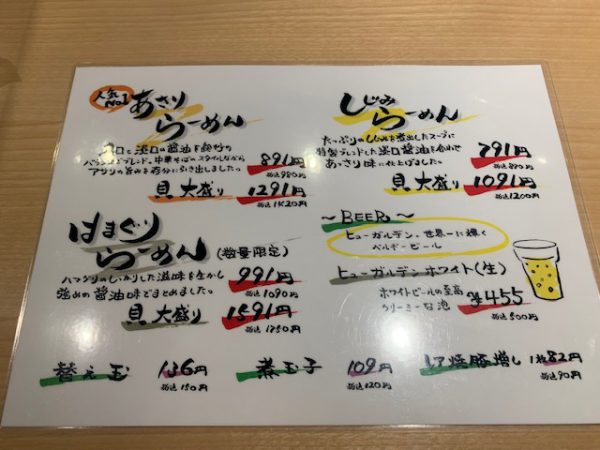 人気No.1
あさり
らーめん
濃口と淡口の醤油を絶妙の
バランスでブレンド。中華そばのスタイルながら
アサリの旨みを存分に引き出しました。
891円
税込980円
貝大盛り 1291円
税込1420円
はまぐり
らーめん(数量限定)
ハマグリのしっかりした滋味を生かし
強めの醤油味でまとめました。
991円
税込1090円
貝大盛り
1591円
税込1750円
しじみ
らーめん
たっぷりのしじみを煮出したスープに
特製ブレンドした淡口醤油を合わせ
あっさり味に仕上げました。
791円
税込870円
貝大盛り 1091円
税込1200円
～BEER～
ヒューガルデン、世界一に輝く
ベルギービール
ヒューガルデンホワイト(生)
ホワイトビールの至高
クリーミーな泡
¥455
税込500円
替え玉 136円
税込150円
煮玉子 109円
税込120円
レア焼豚増し 1枚82円
税込90円